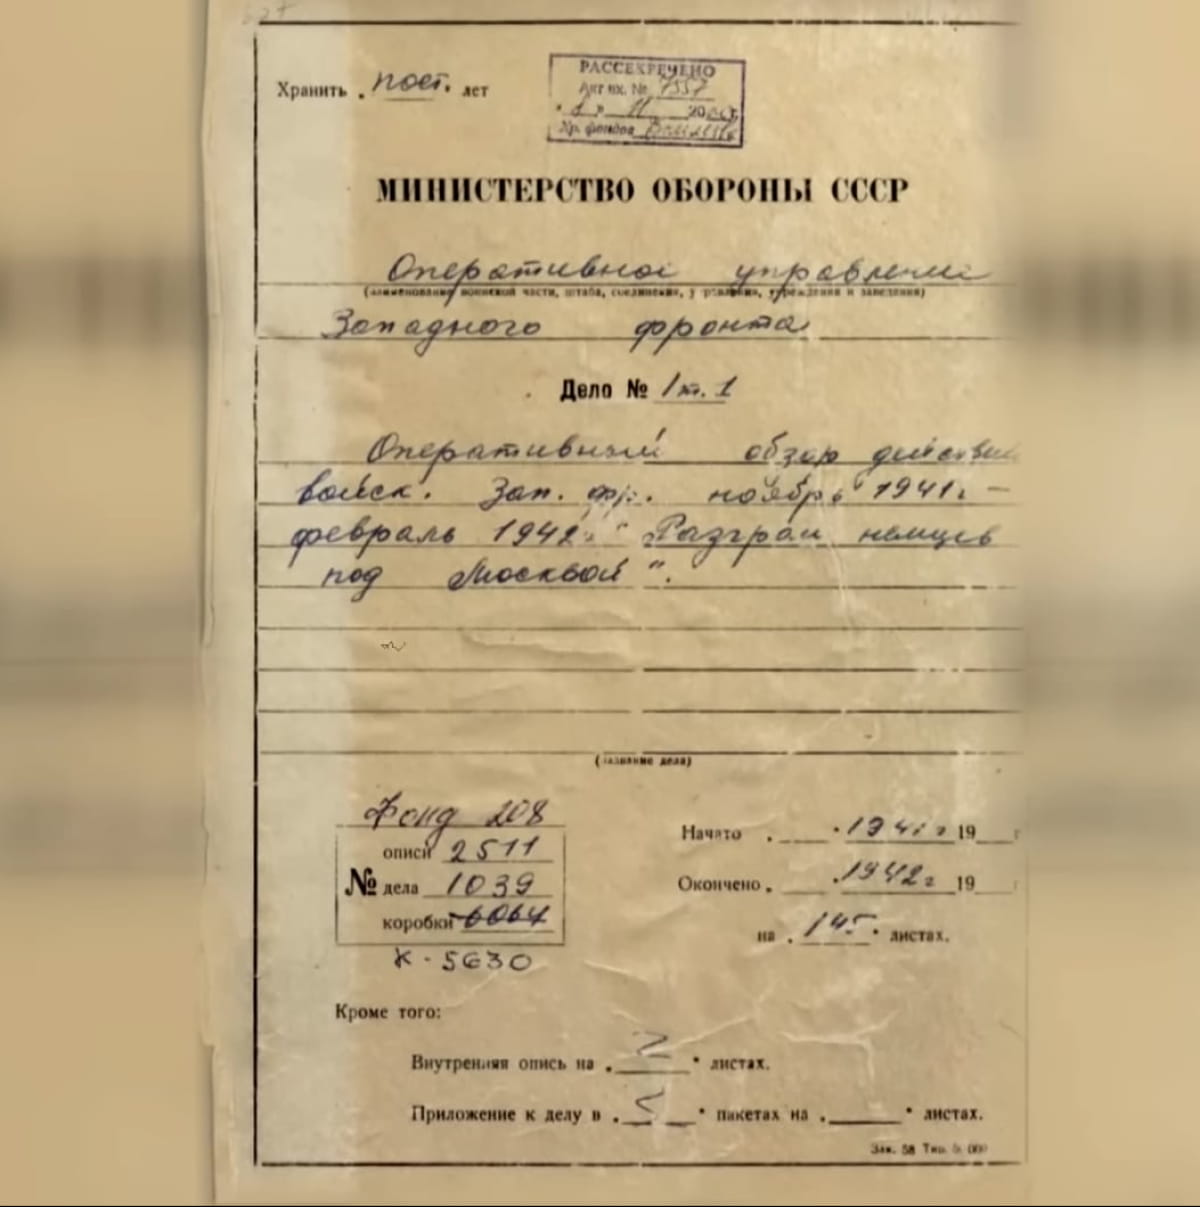 Хранить пост. лет
РАССЕКРЕЧЕНО
Акт вх. № 7557
11 20
Хр. фондов
МИНИСТЕРСТВО ОБОРОНЫ СССР
Оперативное управление
(наименование воинской части, штаба, соединения, управления, учреждения и заведения)
Западного фронта
Дело № 1 т. 1
Оперативный обзор действий
войск. Зап. фр. ноябрь 1941г –
февраль 1942г. "Разгром немцев
под Москвой".
(название дела)
Фонд 208
описи 2511
№ дела 1039
коробки 6064
К - 5630
Начато 1941 г. 19 г
Окончено 1942г 19 г
на 145 листах.
Кроме того:
Внутренняя опись на 2 листах.
Приложение к делу в пакетах на листах.
Зак. 58